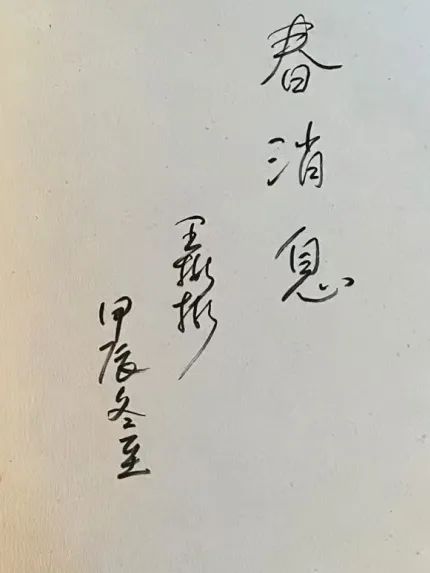 春消息
王彬彬
甲辰冬至